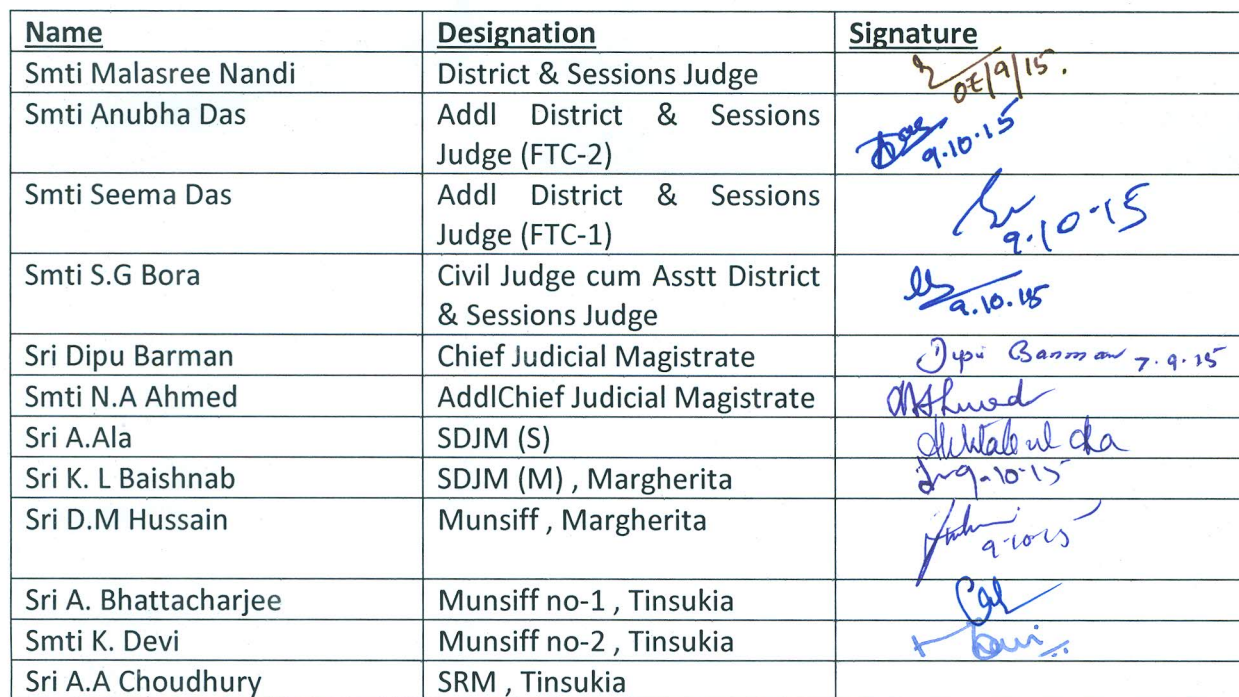 Name Designation Signature
Smti Malasree Nandi District & Sessions Judge 07/9/15.
Smti Anubha Das Addl District & Sessions
Judge (FTC-2) 9.10.15
Smti Seema Das Addl District & Sessions
Judge (FTC-1) 9.10.15
Smti S.G Bora Civil Judge cum Asstt District
& Sessions Judge 9.10.15
Sri Dipu Barman Chief Judicial Magistrate Dipu Barman 7.9.15
Smti N.A Ahmed AddlChief Judicial Magistrate NAhmed
Sri A.Ala SDJM (S)
Sri K. L Baishnab SDJM (M) , Margherita 9-10-15
Sri D.M Hussain Munsiff , Margherita
9-10-15
Sri A. Bhattacharjee Munsiff no-1 , Tinsukia
Smti K. Devi Munsiff no-2 , Tinsukia K Devi
Sri A.A Choudhury SRM , Tinsukia